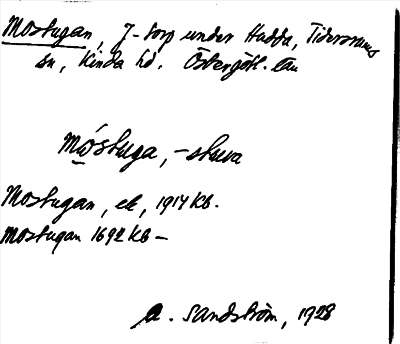 Mostugan, J-torp under Hadda, Tidersrums
sn, Kinda hd. Östergötl. län
Móstuga, -stuva
Mostugan, el, 1917 Kb.
Mostugan 1692 Kb –
A. Sandström, 1928